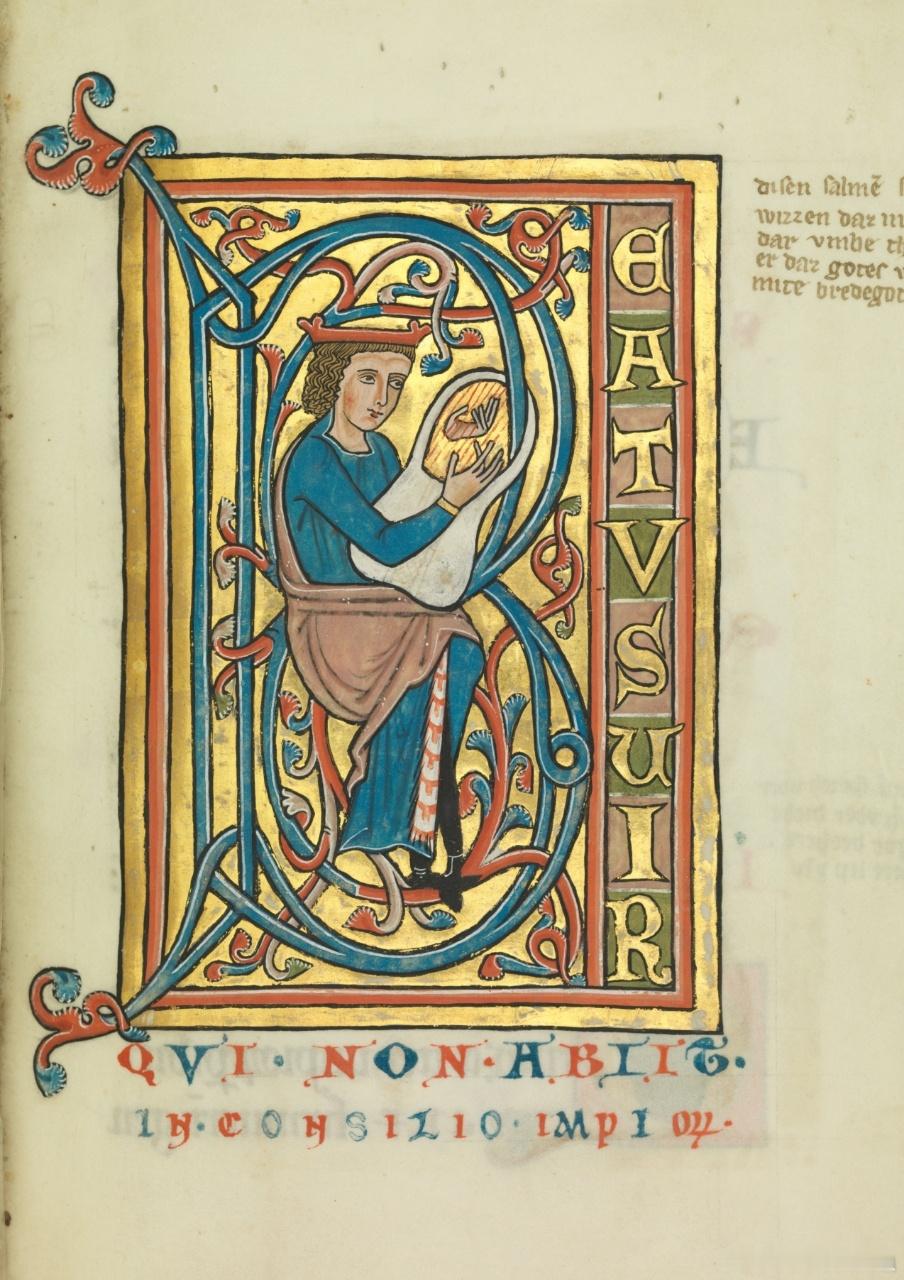 B
EATVSUIR
QVI · NON · ABIIT.
IN · CONSILIO · IMPIOꝜ ·
disen salmē
wizzen dar
dar vmbe
er daz gotes
mite bredegot